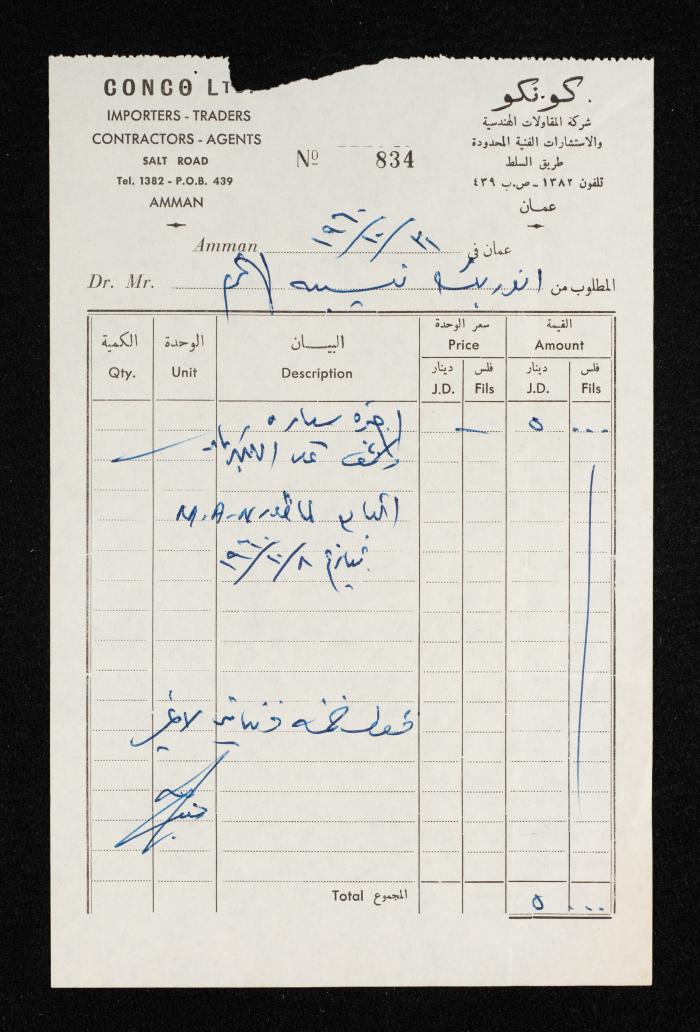 CONCO LT
IMPORTERS - TRADERS
CONTRACTORS - AGENTS
SALT ROAD
Tel. 1382 - P.O.B. 439
AMMAN
Nº 834
كونكو
شركة المقاولات الهندسية
والاستشارات الفنية المحدودة
طريق السلط
تلفون ١٣٨٢ ـ ص.ب ٤٣٩
عمـان
Amman ٣١/١٠/١٩٦٠ عمان في
Dr. Mr. انور بك نسيبه المطلوب من
الكمية الوحدة البيـــان سعر الوحدة القيمة
Qty. Unit Description Price Amount
دينار فلس دينار فلس
J.D. Fils J.D. Fils
اجرة سياره — ٥ ...
M.A.N
بتاريخ ٨/١٠/١٩٦٠
فقط خمسة دنانير لا غير
Total المجموع ٥ ...